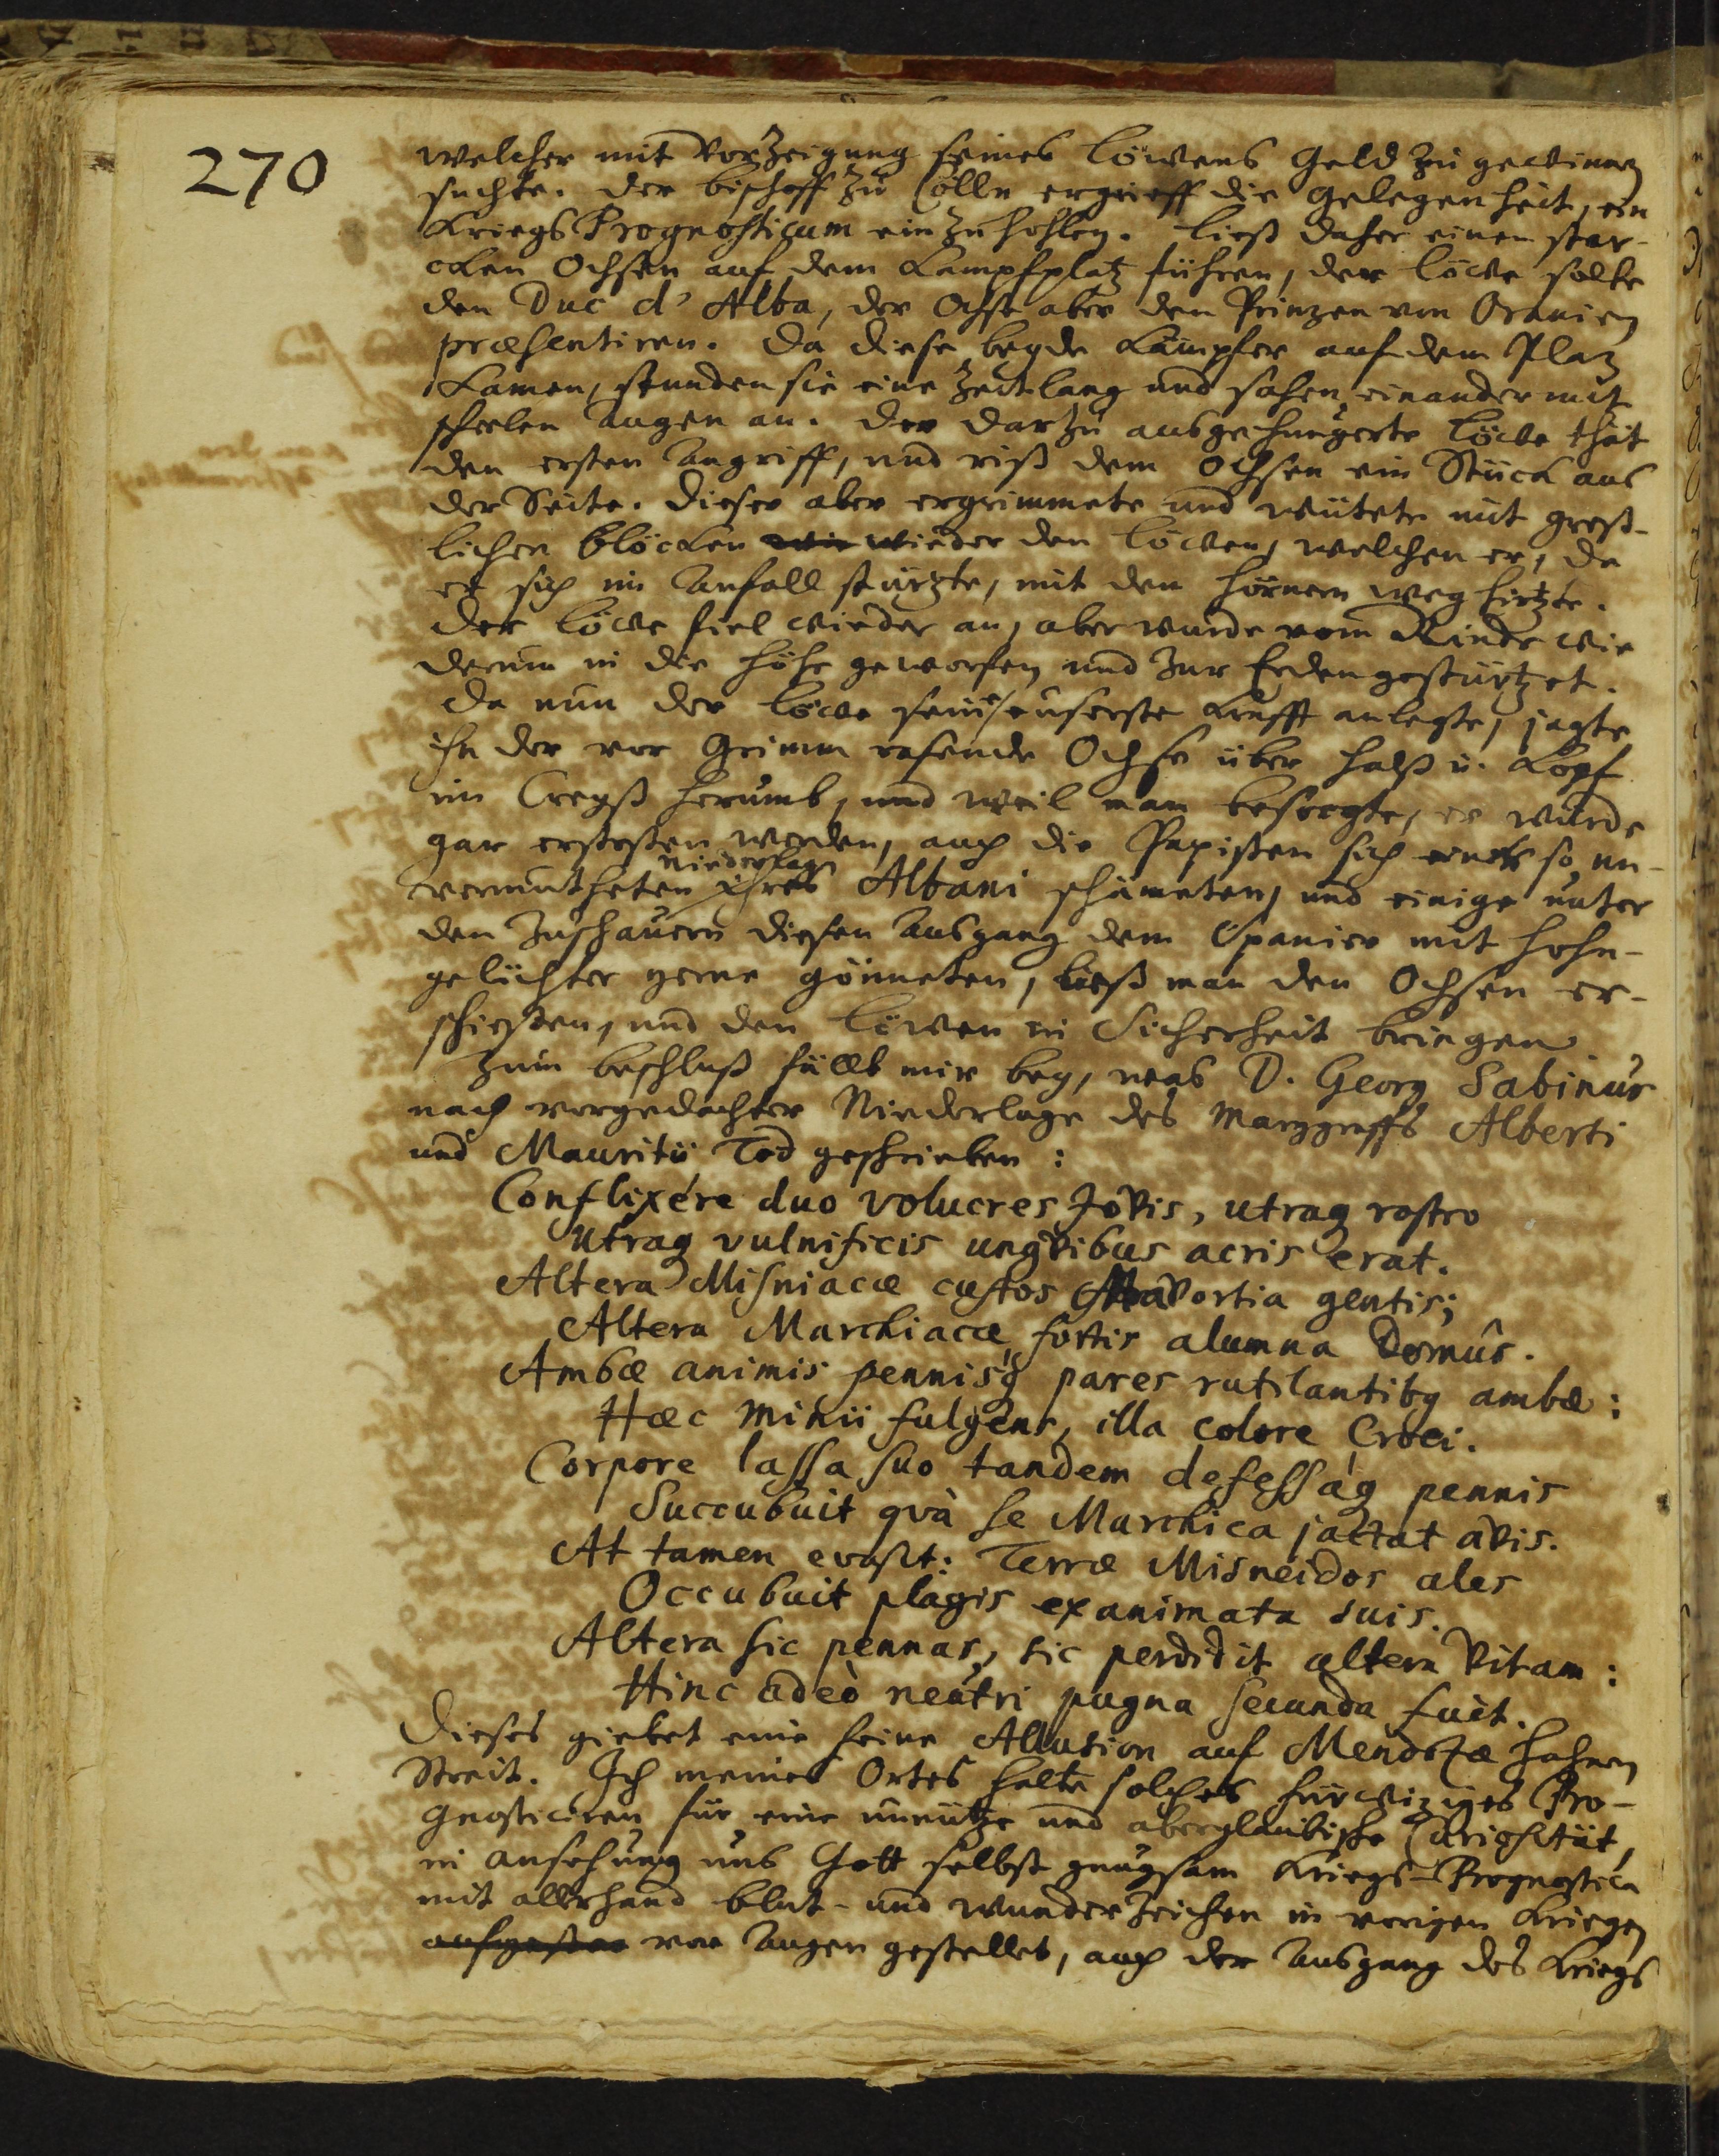 270
welcher mit Vorzeigung seines Löwens Geld zu gewinnen
suchte. Der Bischoff zu Cölln ergrieff die Gelegenheit, ein
Kriegs Prognosticum einzuhohlen. Ließ daher einen star-
cken Ochsen auf dem Kampfplatz führen, der Löwe solte
den Duc d' Alba, der Ochse aber den Prinzen von Oranien
præsentiren. Da diese beyde Kämpfer auf dem Platz
kamen, stunden sie eine Zeitlang und sahen einander mit
scheelen Augen an. Der darzu ausgehungerte Löwe thät
den ersten Angriff, und riß dem Ochsen ein Stück aus
der Seite. Dieser aber ergrimmete und wütete mit greß-
lichen Blöcken wie wieder den Löwen, welchen er, da
er sich im Anfall stürtzte, mit den Hörnern weg hirtzte.
Der Löwe fiel wieder an, aber wurde vom Rinde wie
derum in die Höhe geworfen und zur Erden gestürtzet.
Da nun der Löwe seine euserste Krafft anlegte, jagte
ihn der vor Grimm rasende Ochse über Halß u. Kopf
im Creyß herumb, und weil man besorgte, er würde
gar erstoßen werden, auch die Papisten sich einer so un-
vermutheten Niederlage ihres Albani schämeten, und einige unter
den Zuschauern diesen Ausgang dem Spanier mit Hohn-
gelächter gerne gönneten, ließ man den Ochsen er-
schießen, und den Löwen in Sicherheit bringen.
Zum Beschluß fällt mir bey, was D. Georg Sabinus
nach vorgedachter Niederlage des Marggraffs Alberti
und Mauritii Tod geschrieben:
Conflixére duo volucres Jovis, utraq rostro
Utraq vulnificis ungvibus acris erat.
Altera Misniacæ custos Mavortia gentis;
Altera Marchiacæ fortis alumna Domûs.
Ambæ animis pennisq pares rutilantibq ambæ:
Hæc minii fulgens, illa colore Croci.
Corpore lassa suo tandem defessáq pennis
Succubuit qvà se Marchica jactat avis.
At tamen evasit: Terræ Misneidos ales
Occubuit plagis exanimata suis.
Altera sic pennas, sic perdidit altera vitam:
Hinc adeò neutri pugna secunda fuit.
Dieses giebet eine feine Allusion auf Mendozæ Hahnen
Streit. Ich meines Ortes halte solches fürwiziges Pro-
gnosticiren für eine unnütze und abergläubische Curiosität,
in Ansehung uns Gott selbst gnugsam Kriegs-Prognostica
mit allerhand Blut- und Wunderzeichen in vorigen Kriegen
vor Augen gestellet, auch der Ausgang des Kriegs